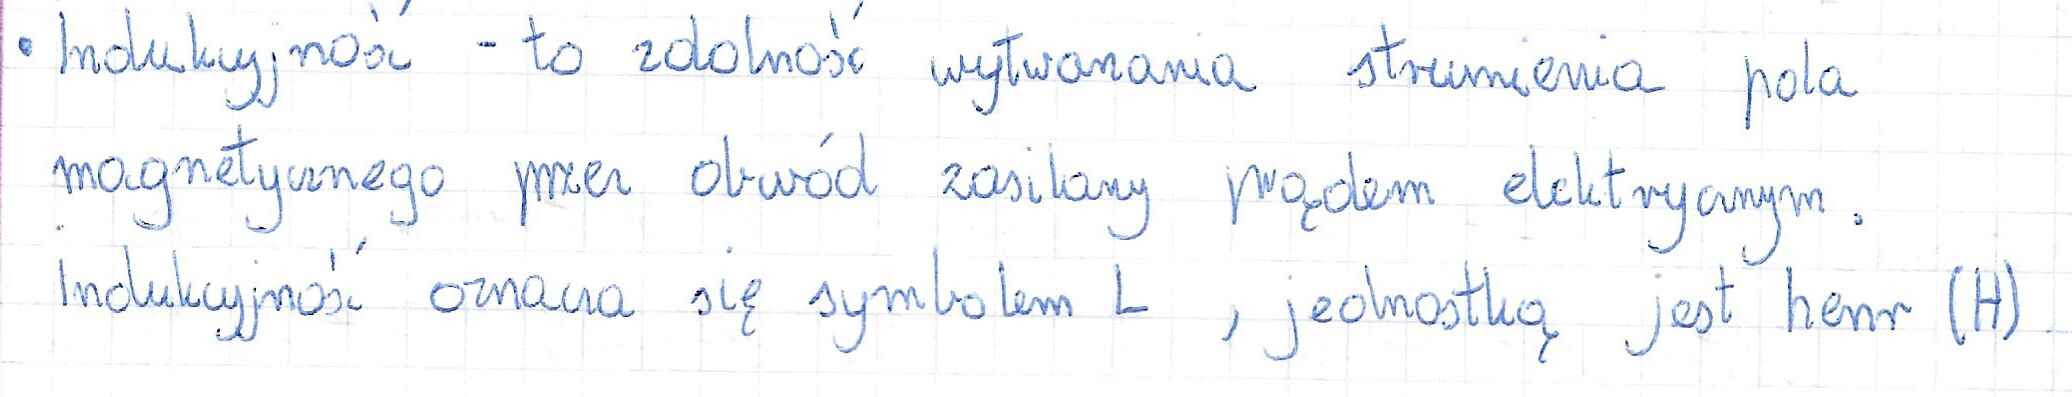 • Indukcyjność - to zdolność wytwarzania strumienia pola
magnetycznego przez obwód zasilany prądem elektrycznym.
Indukcyjność oznacza się symbolem L , jednostką jest henr (H)